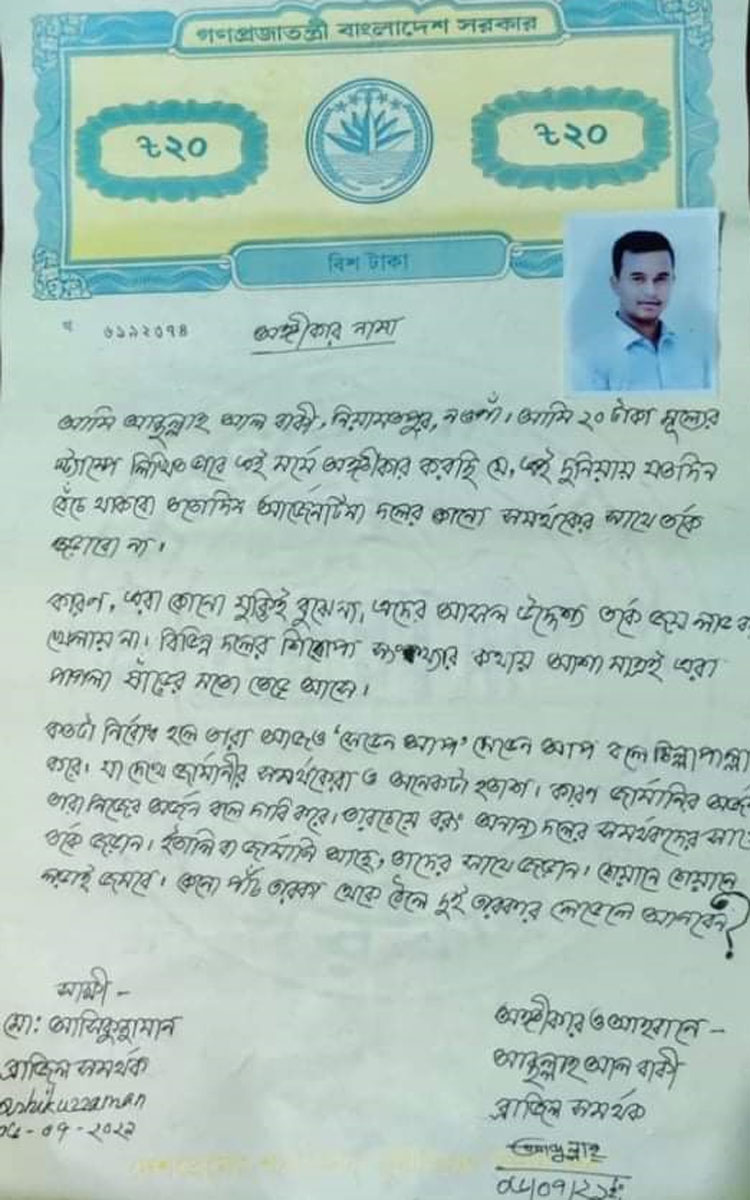 গণপ্রজাতন্ত্রী বাংলাদেশ সরকার
৳২০ ৳২০
বিশ টাকা
৬১৯২০৭৪
অঙ্গীকার নামা
আমি আব্দুল্লাহ আল বাকী, নিয়ামতপুর, নওগাঁ। আমি ২০ টাকা মূল্যের
স্ট্যাম্পে লিখিত ভাবে এই মর্মে অঙ্গীকার করছি যে, এই দুনিয়ায় যতদিন
বেঁচে থাকবো ততোদিন আর্জেনটিনা দলের কোনো সমর্থকের সাথে তর্কে
জড়াবো না।
কারণ, এরা কোনো যুক্তিই বুঝেনা, এদের আসল উদ্দেশ্য তর্কে জয় লাভ করা
খেলায় না। বিভিন্ন দলের শিরোপা সংখ্যার কথায় আশা মাত্রই এরা
পাগলা ষাঁড়ের মতো তেড়ে আসে।
কতটা নির্বোধ হলে তারা আজও 'সেভেন আপ' সেভেন আপ বলে চিল্লাপাল্লা
করে। যা দেখে জার্মানীর সমর্থকেরা ও অনেকটা হতাশ। কারণ জার্মানির অর্জন
তারা নিজের অর্জন বলে দাবি করে। তারচেয়ে বরং অনান্য দলের সমর্থকদের সাথে
তর্কে জড়ান। ইতালি বা জার্মানি আছে, তাদের সাথে জড়ান। সেয়ানে সেয়ানে
লড়াই জমবে। কেনো পাঁচ তারকা থেকে ঠেলে দুই তারকার লেভেলে আনবেন?
সাক্ষী -
মো: আসিকুজ্জামান
ব্রাজিল সমর্থক
ashikuzzaman
০৫-০৭-২০২১
অঙ্গীকার ও আহবানে -
আব্দুল্লাহ আল বাকী
ব্রাজিল সমর্থক
আব্দুল্লাহ